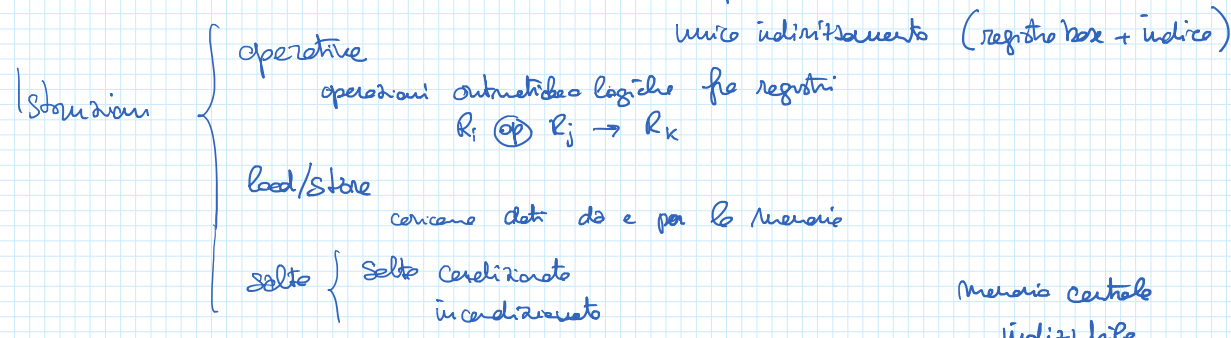 unico indirizzamento (registro base + indice)
Istruzioni
operative
operazioni aritmetico logiche fra registri
Ri op Rj → Rk
load/store
caricano dati da e per la memoria
salto
salto condizionato
incondizionato
memoria centrale